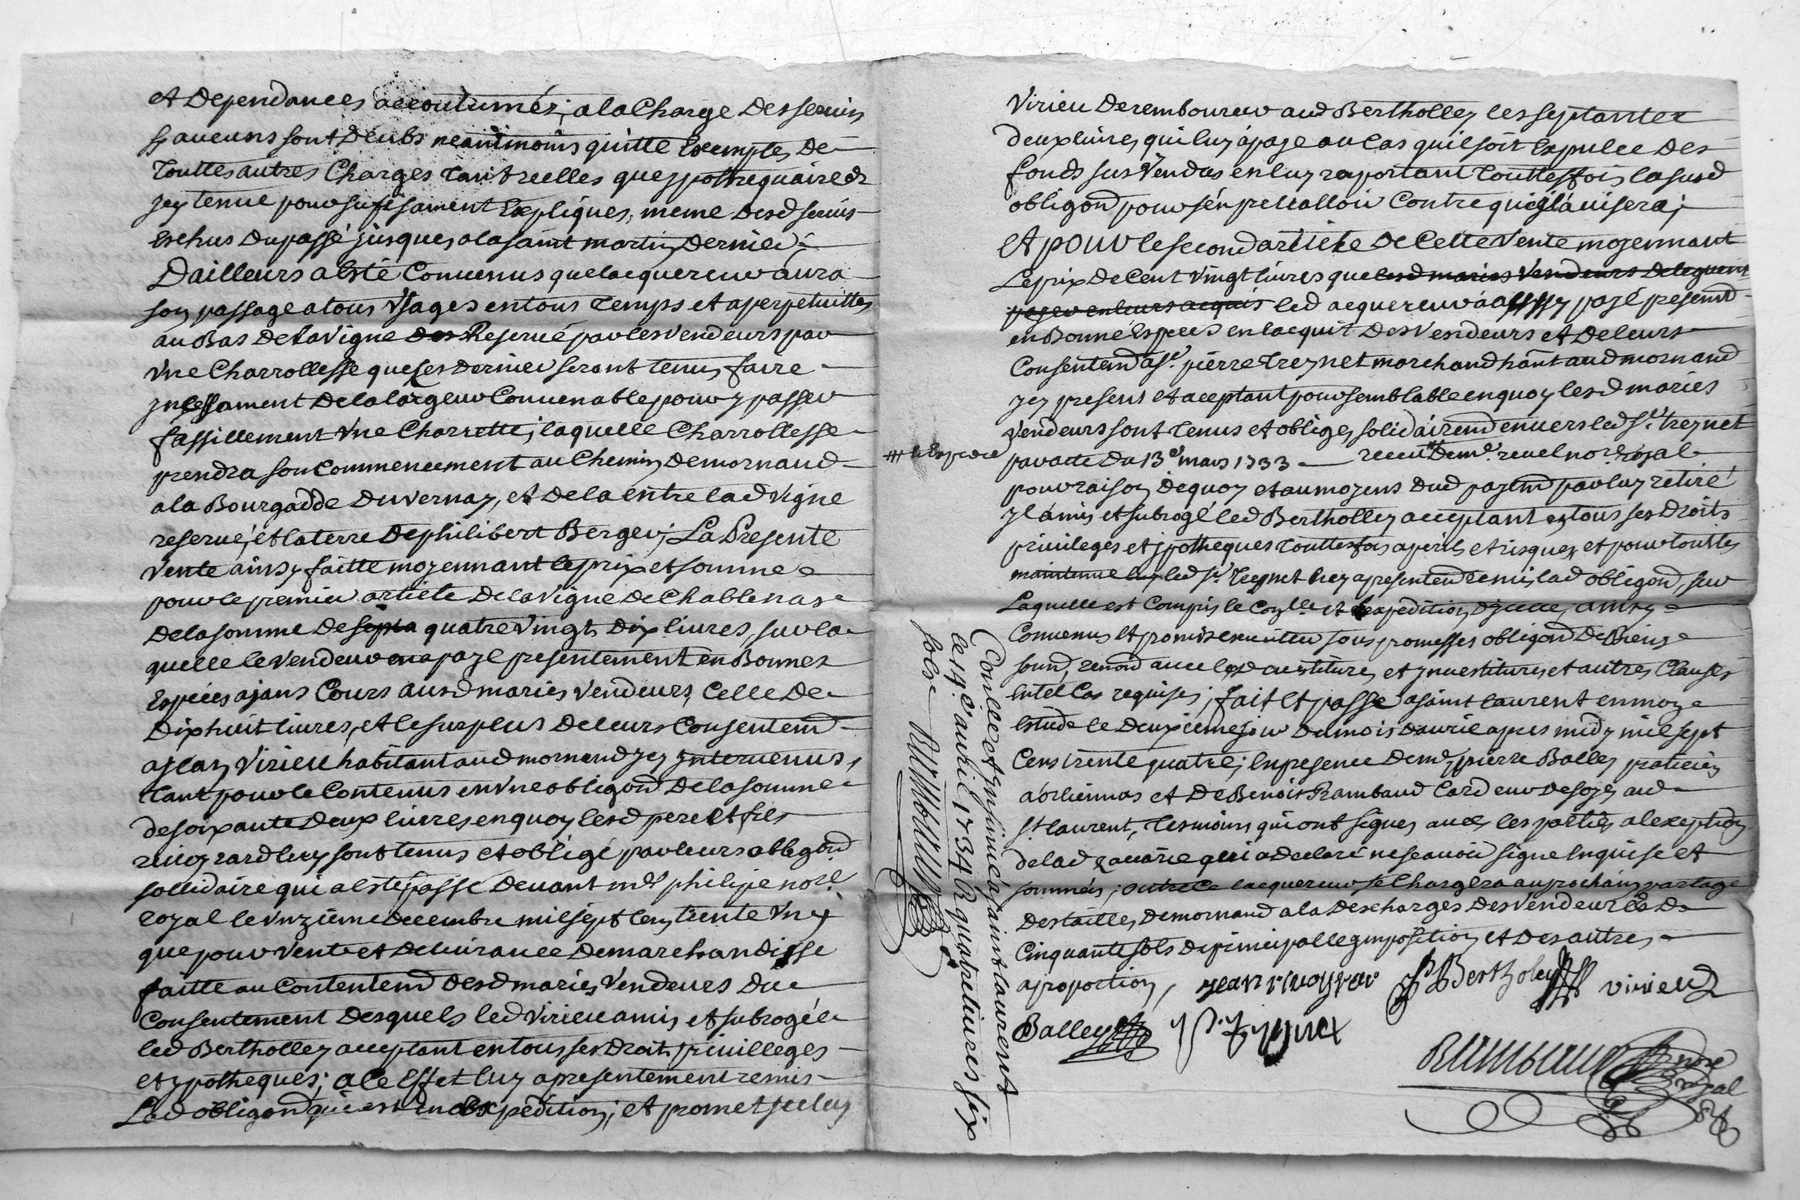 et dependances accoutumés, a la Charge des servis
sy aucuns sont deubs neantmoins quitte Exempts de
Touttes autres Charges tant reelles que ypothequaires
jcy tenue pour sufisament Expliques, meme desd servis
Eschus du passé jusques a la saint martin dernier;
D'ailleurs a esté Convenus que lacquereur aura
son passage a tous Usages en tous temps et a perpetuittes
au Bas de la Vigne Reservé par les Vendeurs par
Une Charrollesse que ses dernier seront tenus faire
jncessament de la largeur Convenable pour y passer
fassillement Une Charrette; laquelle Charrollesse
prendra son Commencement au Chemin de mornand
a la Bourgadde du vernay, et de la entre lad vigne
reservé, et la terre de philibert Berger; La Presente
Vente ainsy faitte moyennant le prix et somme
pour le premier article de la Vigne de Chablenas
de la somme de quatre vingt Dix livres, sur la
quelle le vendeur a payé presentement en Bonnes
Especes ajans Cours ausd mariés Vendeurs Celle de
Dixhuit livres, et le surplus de leurs Consentemd
a jean Virieu habitant aud mornand jcy jntervenus,
tant pour le Contenus en Une obligaond de la somme
de soixante Deux livres en quoy lesd pere et fils
sont tenus et obligé par leurs obligaond
sollidaire qui a esté passé devant me philipe nore
royal le Unzieme decembre mil sept Cens trente Un;
que pour Vente et delivrance de marchandisse
faitte au Contentemd desd mariés Vendeurs du
Consentement desquels led Virieu a mis et subrogé
led Bertholley acceptant en tous ses Droits privilleges
et ypotheques; a Ce Effet luy a presentement remis
Lad obligaond qui est en Expedition; et promet jceluy
Virieu de rembourcer aud Bertholley les septante
deux livres qui luy a payé au Cas quil soit Expulcé des
fonds sus Vendus en luy raportant touttesfois la susd
obligaond pour sen prevalloir Contre qui jl avisera;
et pour le second article de Cette Vente moyennant
Le prix de Cent Vingt livres que lesd mariés Vendeurs deleguent
payer en leurs acquis led acquereur a payé presentemd
en Bonne Especes en lacquit des Vendeurs et de leurs
Consentemd a sr pierre Treynet marchand hant aud mornand
jcy present et aceptant pour semblable en quoy lesd mariés
Vendeurs sont tenus et obliges solidairemd envers led sr treynet
par acte du 13e mars 1733 receu me revel nore royal
pour raison de quoy et au moyens dud payemd par luy retiré
jl a mis et subrogé led Bertholley acceptant en tous ses Droits
privileges et jpotheques touttesfois a perils et risques et pour touttes
maintenue led sr treynet luy a presentemd remis lad obligaond, sur
Laquelle est Compris le Congtle et lexpedition d'jcelle, ainsy
Convenus et promis executer sous promesses obligaond de Biens
soumd, renond avec lesd et jnvestitures et autres Clauses
en tel Cas requises; fait et passé a saint laurent en mon
Estude le deuxieme jour du mois davril apres midy mil sept
Cens trente quatre; en presence de me pierre Balley praticien
a orliennas et de Benoit Rambaud Cardeur de soye aud
st laurent, tesmoins qui ont signes avec les parties a lexeption
de lad qui a declaré ne scavoir signé Enquise et
sommée; outre ce lacquereur se Chargera au prochain partage
des tailles de mornand a la descharges des vendeur de
Cinquante sols de principalle jmposition et des autres
a proportion,
Bertholey
Virieu
Balley
Treynet
Rambaud nore royal
lexpedié
Controllé et insinué a saint laurent
le 14 d'avril 1734 R quatre livres six
sols
Rambaud